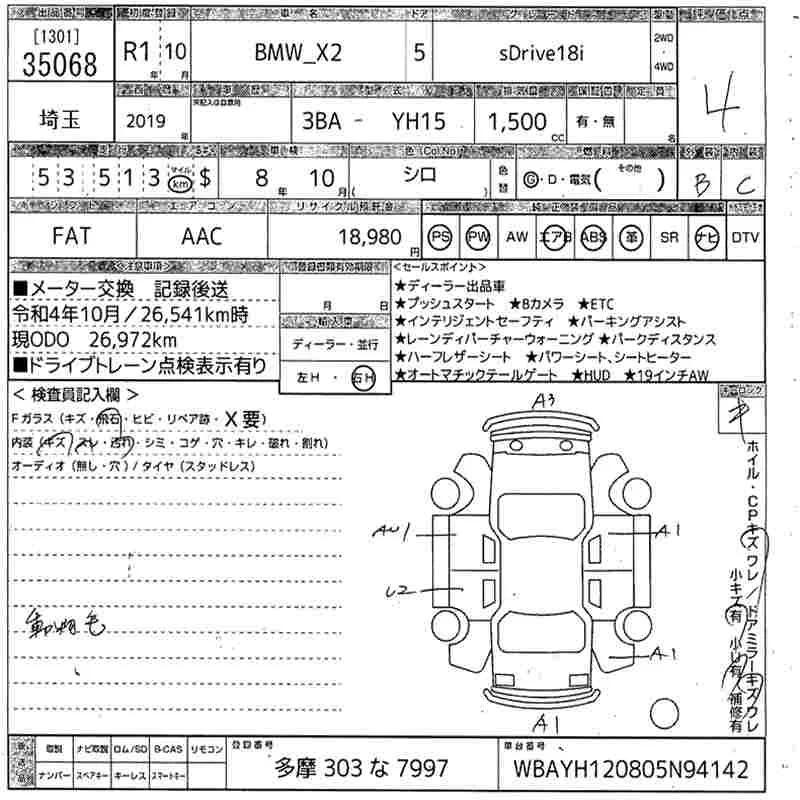 出品番号 初度登録 車名 ドア グレード 駆動 評価点
[1301]
35068 R1年 10月 BMW_X2 5 sDrive18i 2WD・4WD 4
埼玉 2019年 3BA - YH15 1,500cc 有・無 名
走行 車検 色(Col.No) 色替 燃料 外装 内装
53,513 マイル km $ 8年 10月 シロ ( ) G・D・電気(その他 ) B C
シフト エアコン リサイクル預託金
FAT AAC 18,980円 PS PW AW エアB ABS 革 SR ナビ DTV
注意事項 登録書類有効期限 <セールスポイント>
■メーター交換 記録後送
令和4年10月/26,541km時
現ODO 26,972km
■ドライブトレーン点検表示有り
月 日
輸入車
ディーラー・並行
左H・右H
★ディーラー出品車
★プッシュスタート ★Bカメラ ★ETC
★インテリジェントセーフティ ★パーキングアシスト
★レーンディパーチャーウォーニング ★パークディスタンス
★ハーフレザーシート ★パワーシート、シートヒーター
★オートマチックテールゲート ★HUD ★19インチAW
<検査員記入欄>
Fガラス(キズ・飛石・ヒビ・リペア跡・X要)
内装(キズ・スレ・汚れ・シミ・コゲ・穴・キレ・破れ・割れ)
オーディオ(無し・穴)/タイヤ(スタッドレス)
動物毛
A3
AU1
A1
U2
A1
A1
ホイル・CPキズワレ/ドアミラーキズワレ
小キズ有 小U有 補修有
後送品 取説 ナビ取説 ロム/SD B-CAS リモコン
ナンバー スペアキー キーレス スマートキー
登録番号
多摩 303 な 7997
車台番号
WBAYH120805N94142